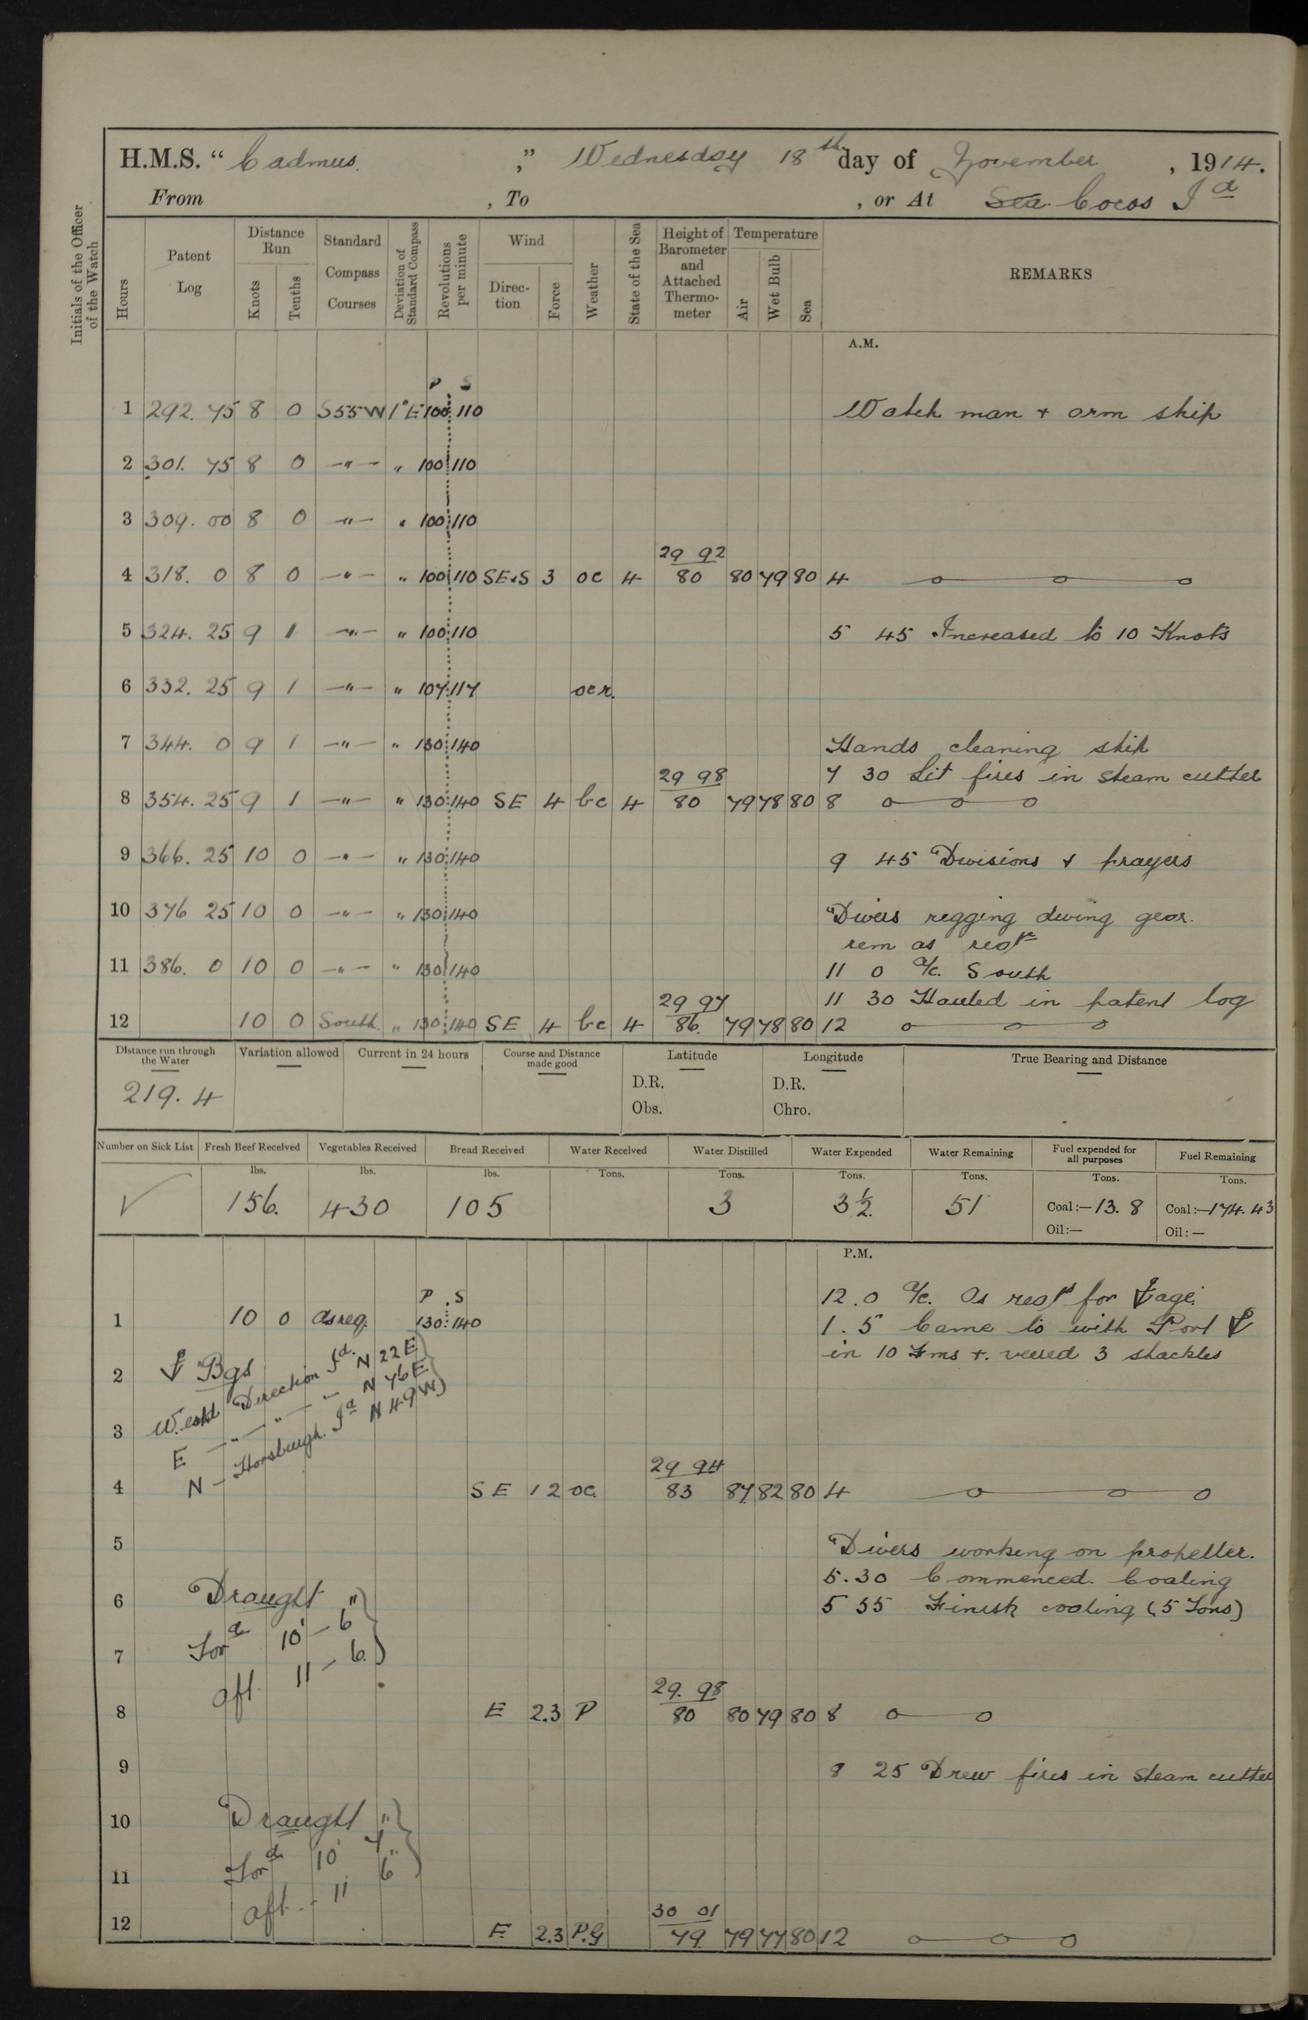 H.M.S. "Cadmus," Wednesday 18th day of November, 1914.
From , To , or At Sea. Cocos Id
Initials of the Officer of the Watch
Hours
Patent Log
Distance Run
Knots
Tenths
Standard Compass Courses
Deviation of Standard Compass
Revolutions per minute
Wind
Direction
Force
Weather
State of the Sea
Height of Barometer and Attached Thermometer
Temperature
Air
Wet Bulb
Sea
REMARKS
A.M.
P S
1 292. 75 8 0 S55W 1°E 100 110 Watch man + arm ship
2 301. 75 8 0 —"— " 100 110
3 309. 00 8 0 —"— " 100 110
29 92
4 318. 0 8 0 —"— " 100 110 SE.S 3 oc 4 80 80 79 80 4
5 324. 25 9 1 —"— " 100 110 5 45 Increased to 10 Knots
6 332. 25 9 1 —"— " 107 117 ocr.
7 344. 0 9 1 —"— " 130 140 Hands cleaning ship
29 98 7 30 Lit fires in steam cutter
8 354. 25 9 1 —"— " 130 140 SE 4 bc 4 80 79 78 80 8
9 366. 25 10 0 —"— " 130 140 9 45 Divisions + prayers
10 376 25 10 0 —"— " 130 140 Divers regging diving gear.
rem as reqte
11 386. 0 10 0 —"— " 130 140 11 0 a/c. South
29 97 11 30 Hauled in patent log
12 10 0 South " 130 140 SE 4 bc 4 86. 79 78 80 12
Distance run through the Water
Variation allowed
Current in 24 hours
Course and Distance made good
Latitude
Longitude
True Bearing and Distance
219. 4
D.R. D.R.
Obs. Chro.
Number on Sick List
Fresh Beef Received
Vegetables Received
Bread Received
Water Received
Water Distilled
Water Expended
Water Remaining
Fuel expended for all purposes
Fuel Remaining
lbs. lbs. lbs. Tons. Tons. Tons. Tons. Tons. Tons.
156. 430 105 3 3½ 51 Coal:—13. 8 Coal:—174. 43
Oil:— Oil:—
P.M.
12. 0 a/c. As reqd for age.
P. S
1 10 0 as req. 130 140 1. 5 Came to with Port
in 10 Fms +. veered 3 shackles
2 Bgs
Westd Direction Id. N 22 E
3 E — " — " — N 76 E
N — Horsburgh. Id N 49 W
29 94
4 SE 1 2 oc. 83 87 82 80 4
5 Divers working on propeller.
5. 30 Commenced. Coaling
6 Draught 5 55 Finish coaling (5 Tons)
Ford 10' — 6"
7 aft 11 — 6.
29. 98
8 E 2.3 P 80 80 79 80 8
9 8 25 Drew fires in steam cutter
10 Draught
Ford 10' 7"
11 aft. - 11 6"
30 01
12 E. 2.3 P.G 79. 79 77 80 12